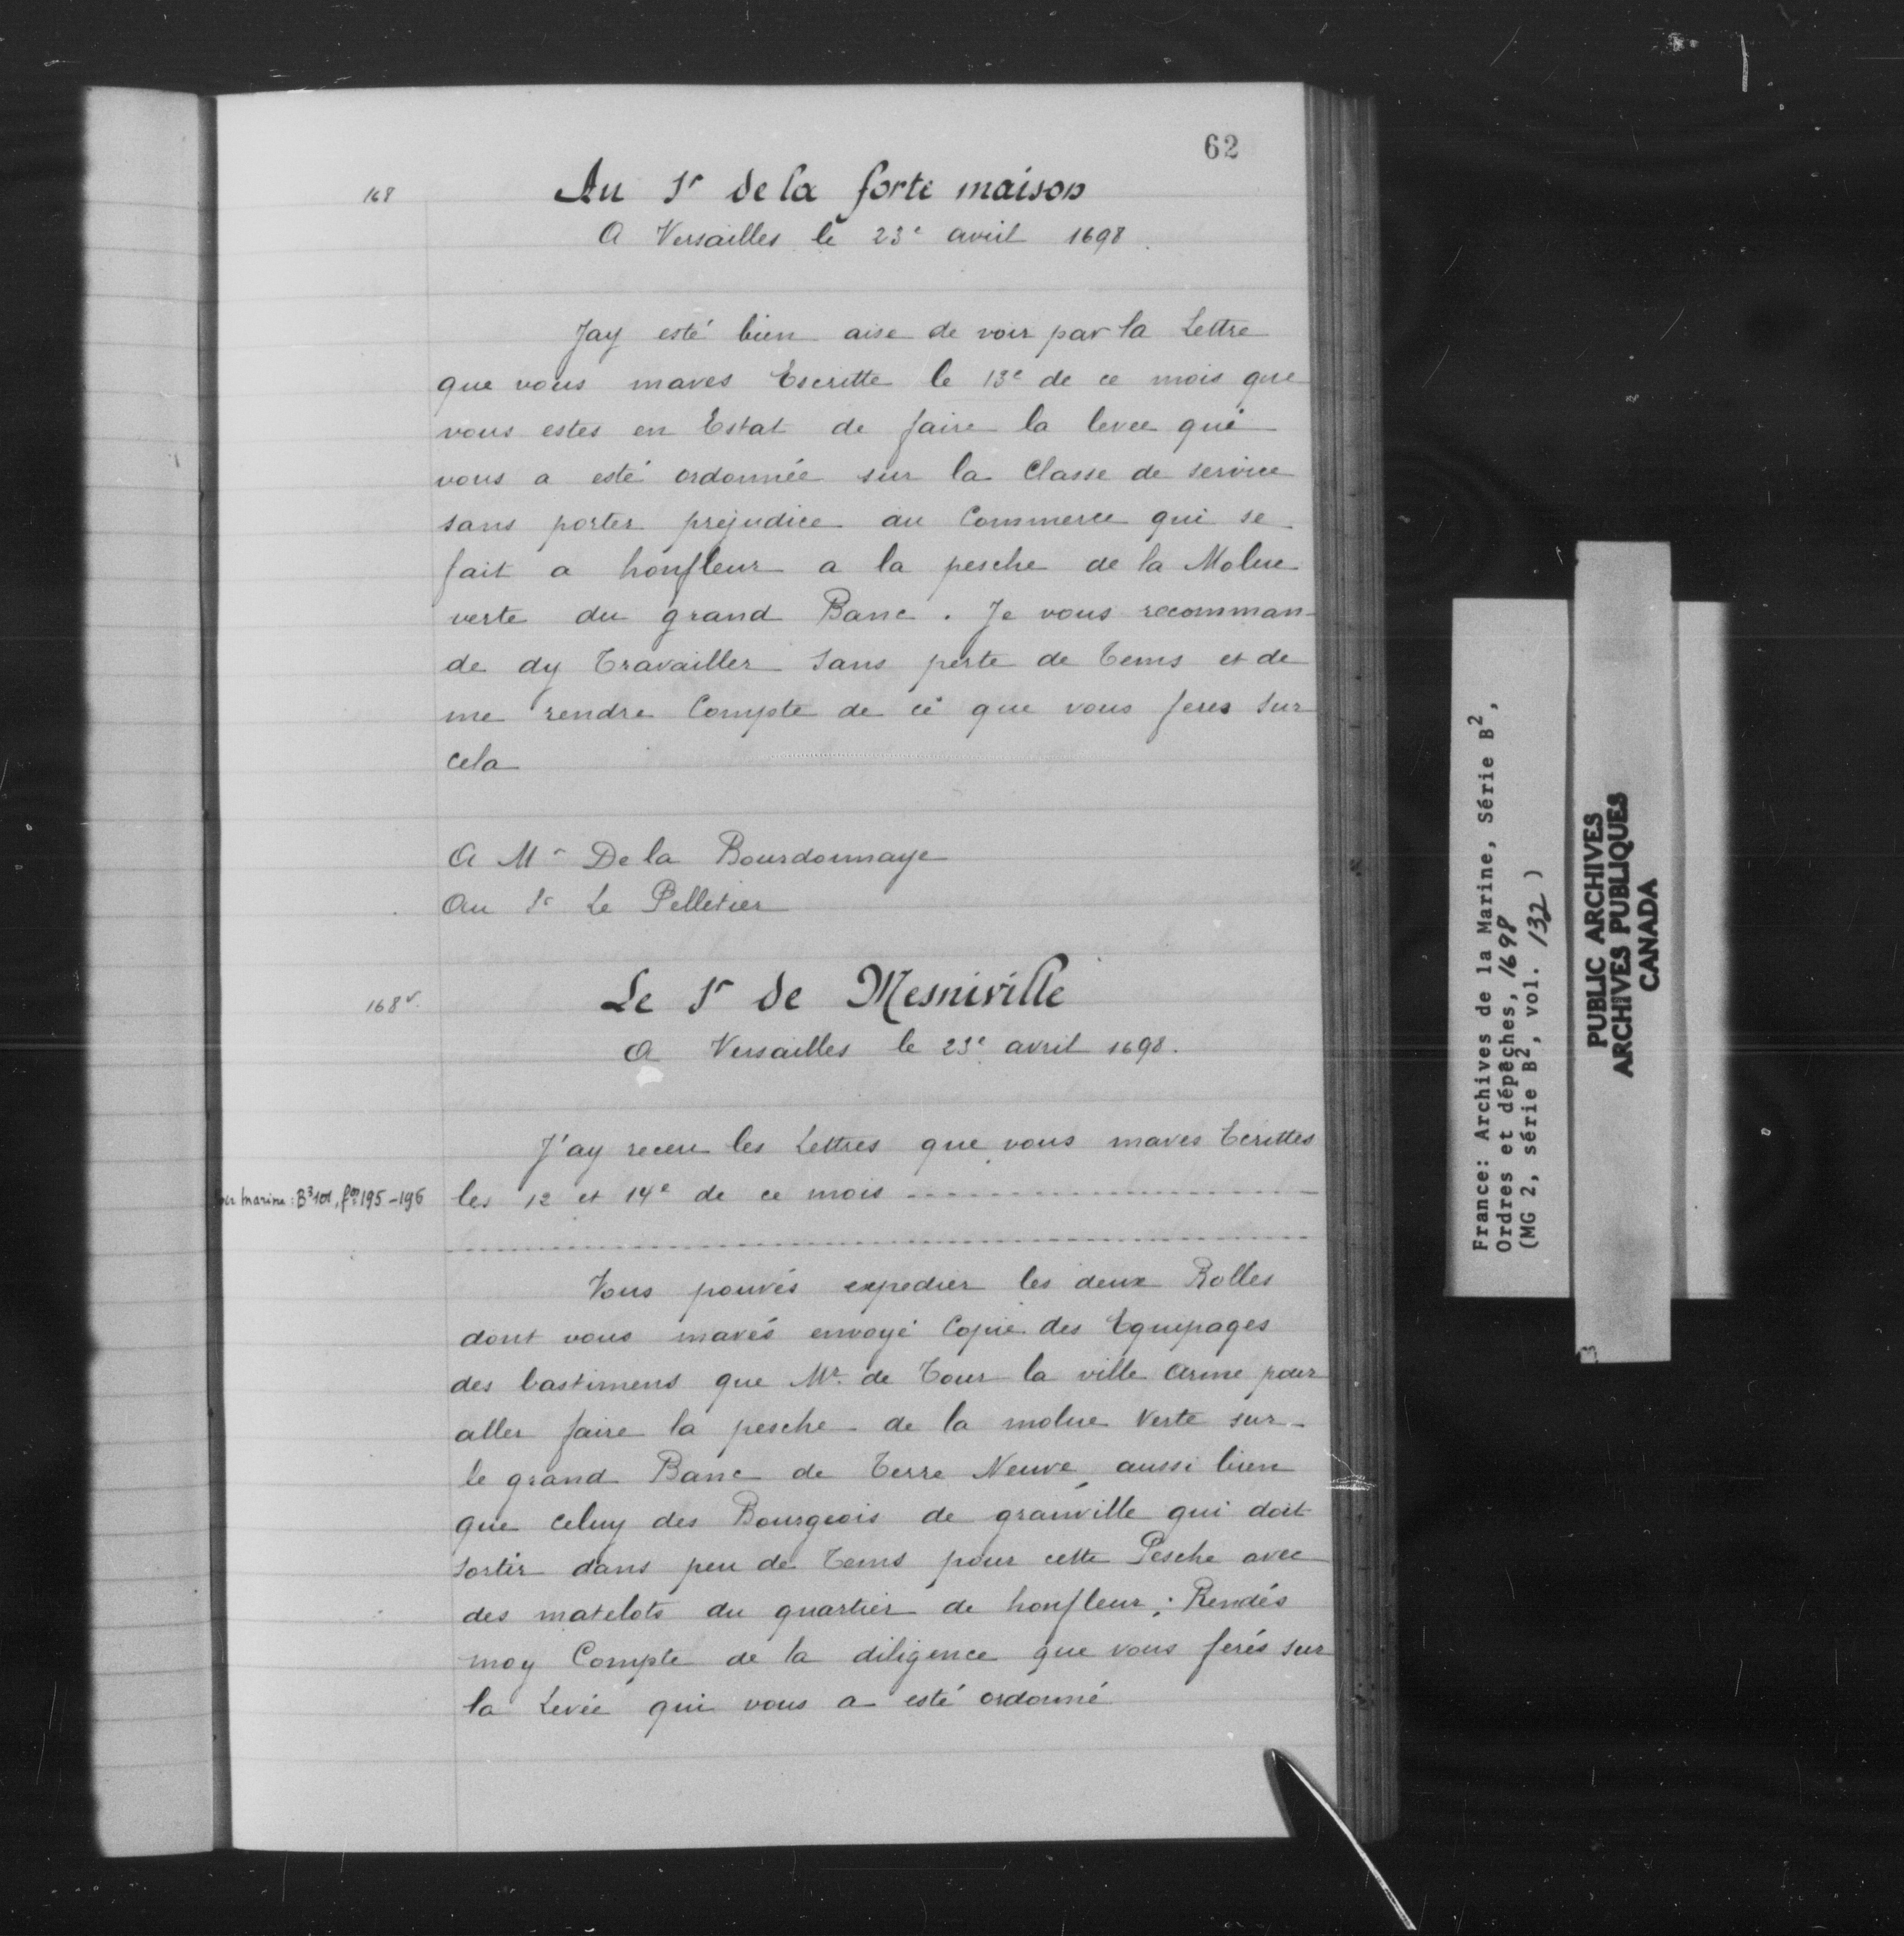 62
168
Au Sr de la forte maison
A Versailles le 23e avril 1698.
Jay esté bien aise de voir par la Lettre
que vous maves Escritte le 13e de ce mois que
vous estes en Estat de faire la levee qui
vous a esté ordonnée sur la Classe de service
sans porter prejudice au Commerce qui se
fait a honfleur a la pesche de la Molue
verte du grand Banc. Je vous recomman-
de dy Travailler sans perte de Tems et de
me rendre Compte de ce que vous feres sur
cela
A Mr De la Bourdonnaye
Au Sr Le Pelletier
168v.
Le Sr de Mesniville
A Versailles le 23e avril 1698.
J'ay receu les Lettres que vous maves Ecrittes
marine: B3 101, fos 195-196
les 12 et 14e de ce mois
Vous pouvés expedier les deux Rolles
dont vous mavés envoyé Copie des Equipages
des bastimens que Mr. de Tour la ville Arme pour
aller faire la pesche de la molue Verte sur
le grand Banc de Terre Neuve, aussi bien
que celuy des Bourgeois de granville qui doit
sortir dans peu de Tems pour cette Pesche avec
des matelots du quartier de honfleur; Rendés
moy Compte de la diligence que vous ferés sur
la Levée qui vous a esté ordonné
France: Archives de la Marine, Série B2,
Ordres et dépêches, 1698
(MG 2, série B2, vol. 132)
PUBLIC ARCHIVES
ARCHIVES PUBLIQUES
CANADA
3